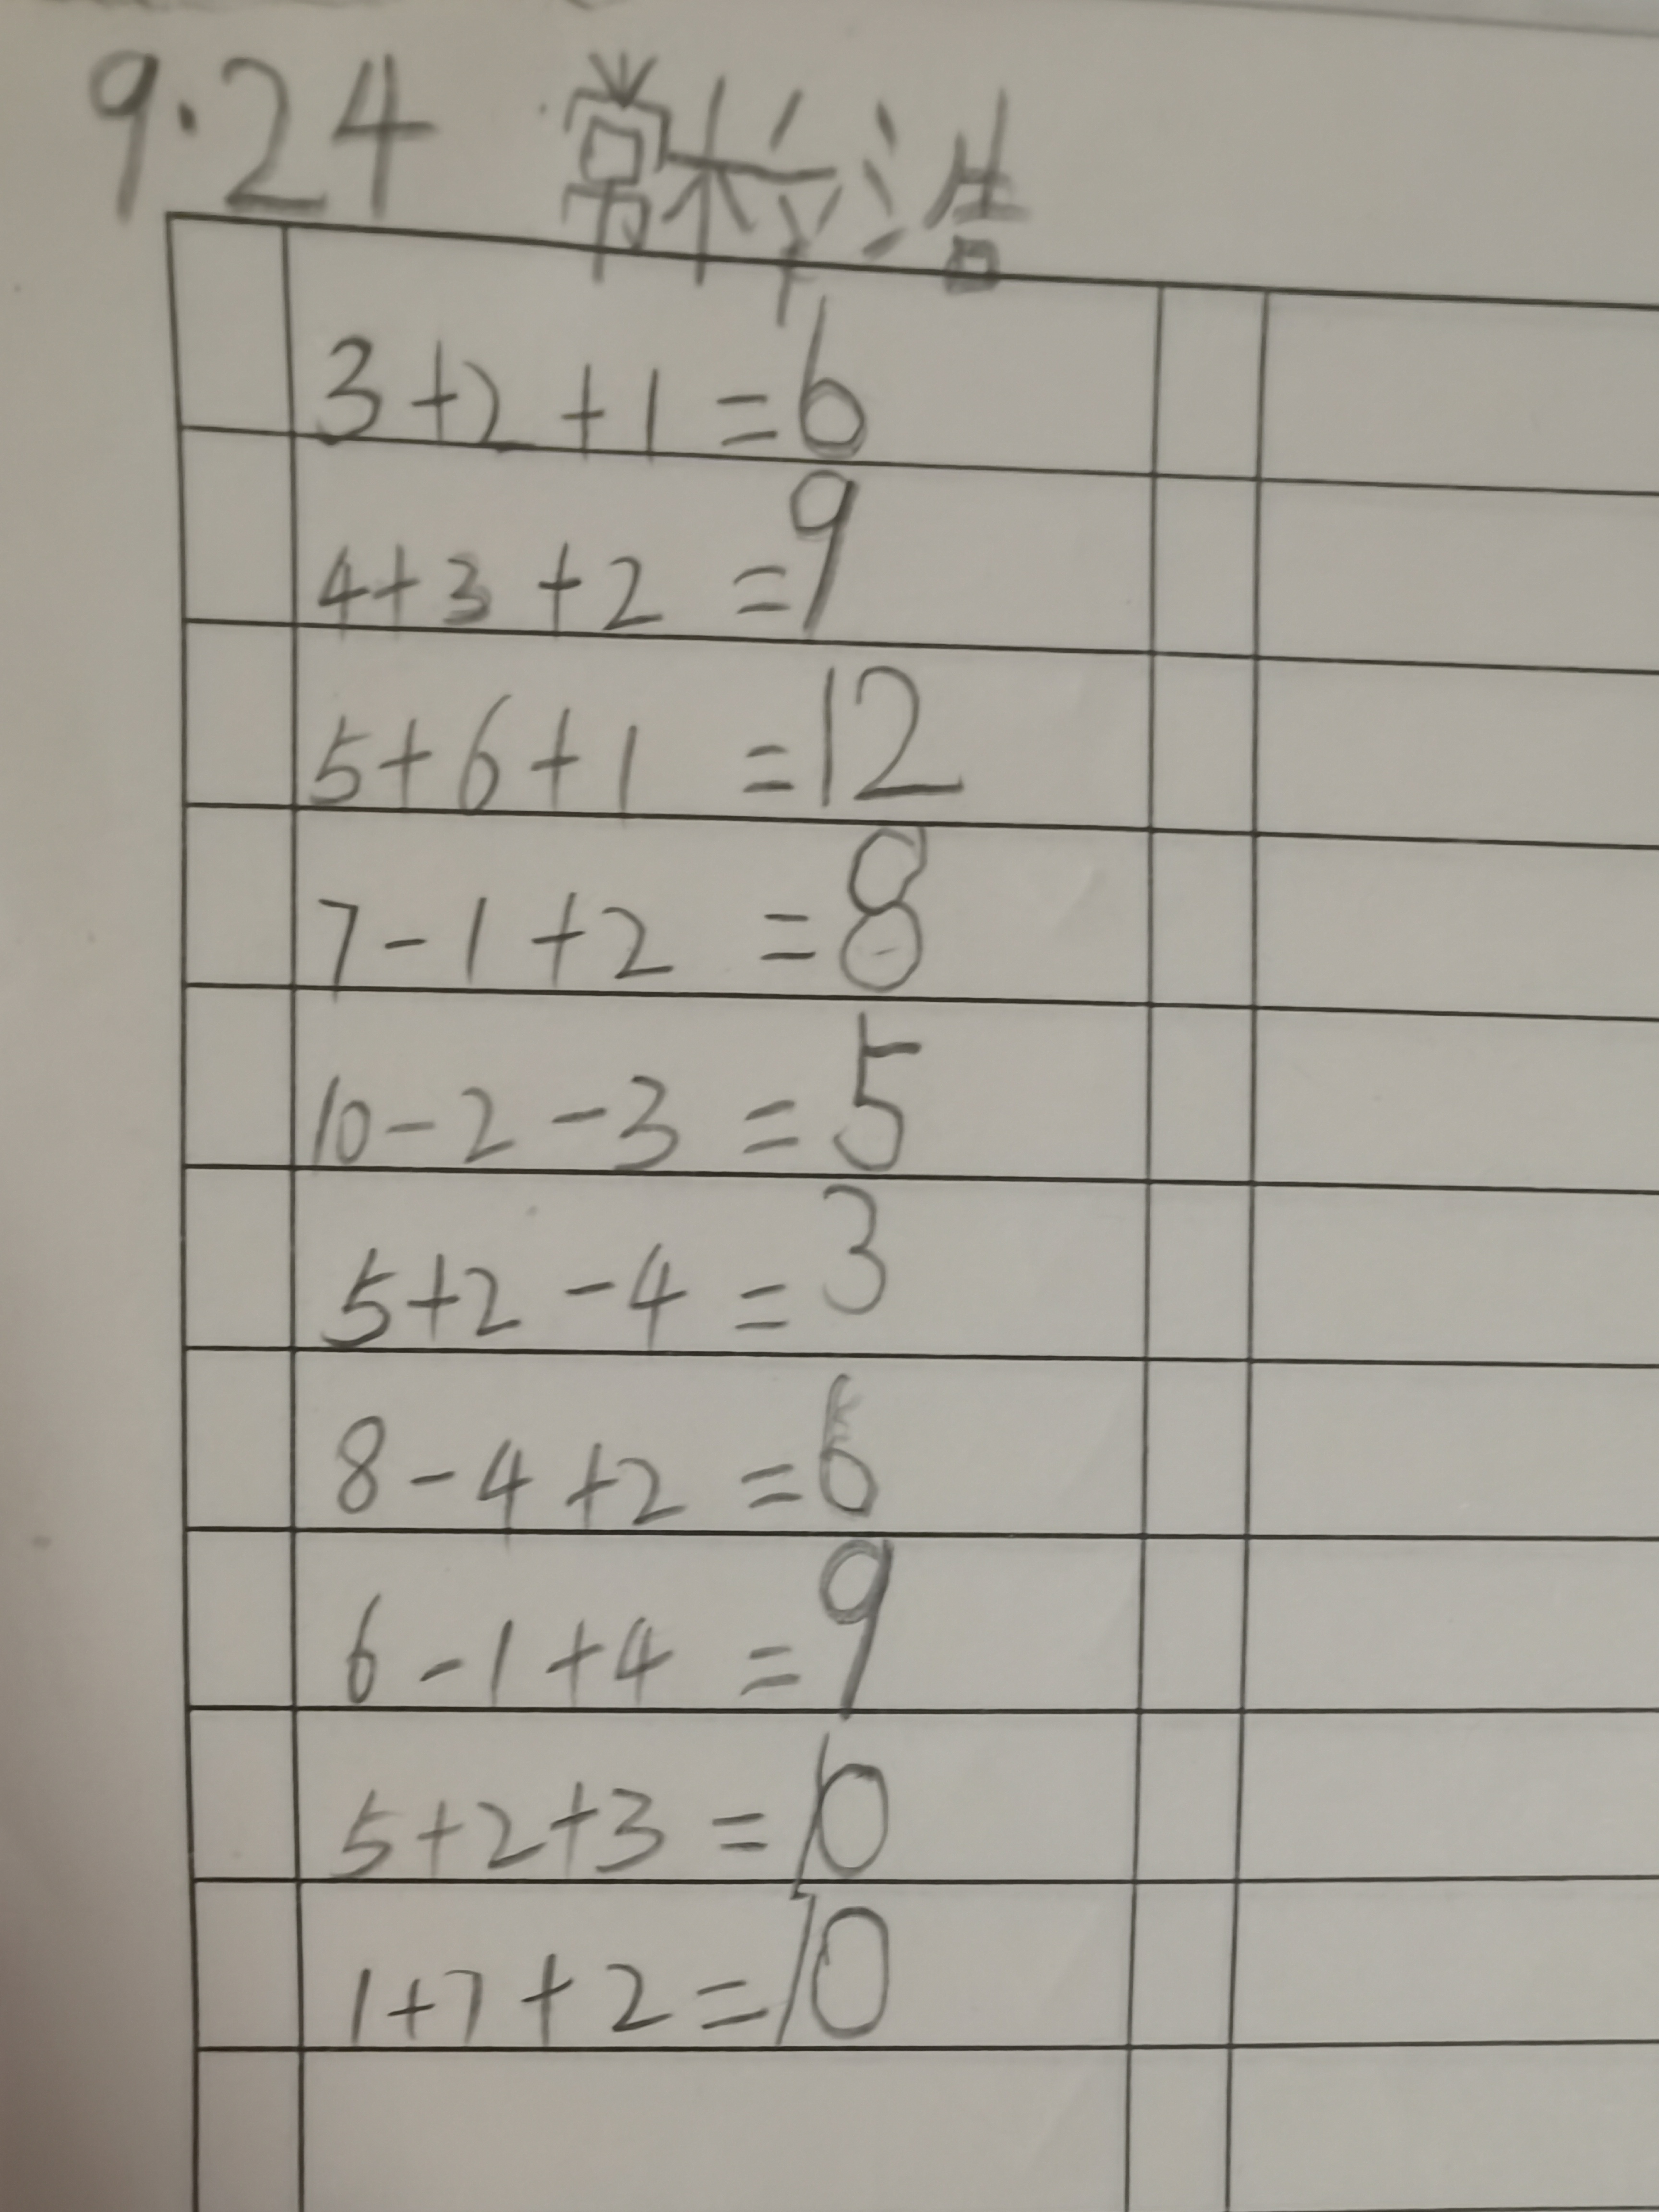 9.24 常梓浩
3+2+1=6
4+3+2=9
5+6+1=12
7-1+2=8
10-2-3=5
5+2-4=3
8-4+2=6
6-1+4=9
5+2+3=10
1+7+2=10